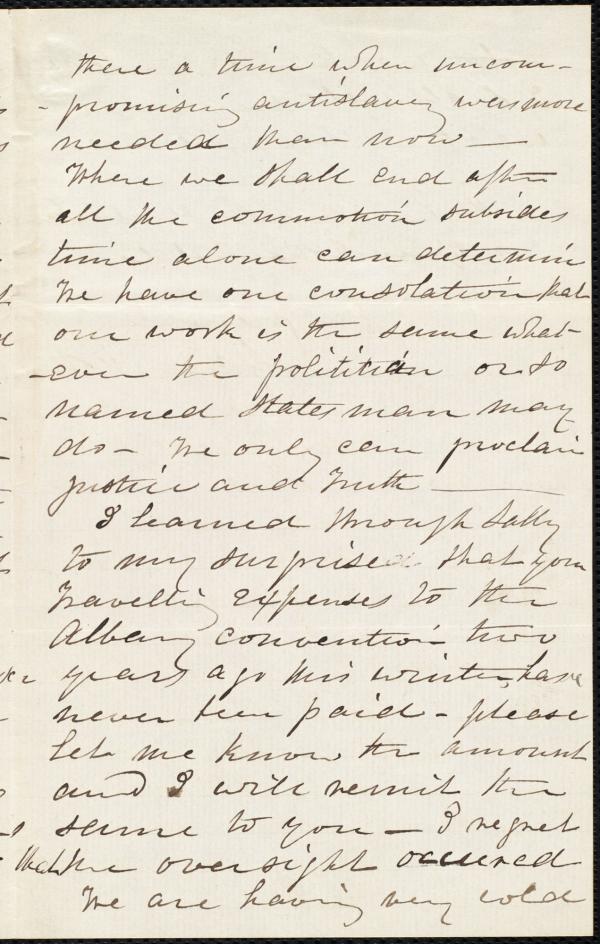 there a time when uncom-
-promising antislavery was more
needed than now —
Where we shall end after
all the commotion subsides
time alone can determin
We have one consolation that
our work is the same what-
-ever the polititian or so
named statesman may
do - We only can proclaim
justice and truth —
I learned through Sally
to my surprise that your
travelling expenses to the
Albany convention two
years ago this winter, have
never been paid - please
let me know the amount
and I will remit the
same to you — I regret
that the oversight occured
We are having very cold